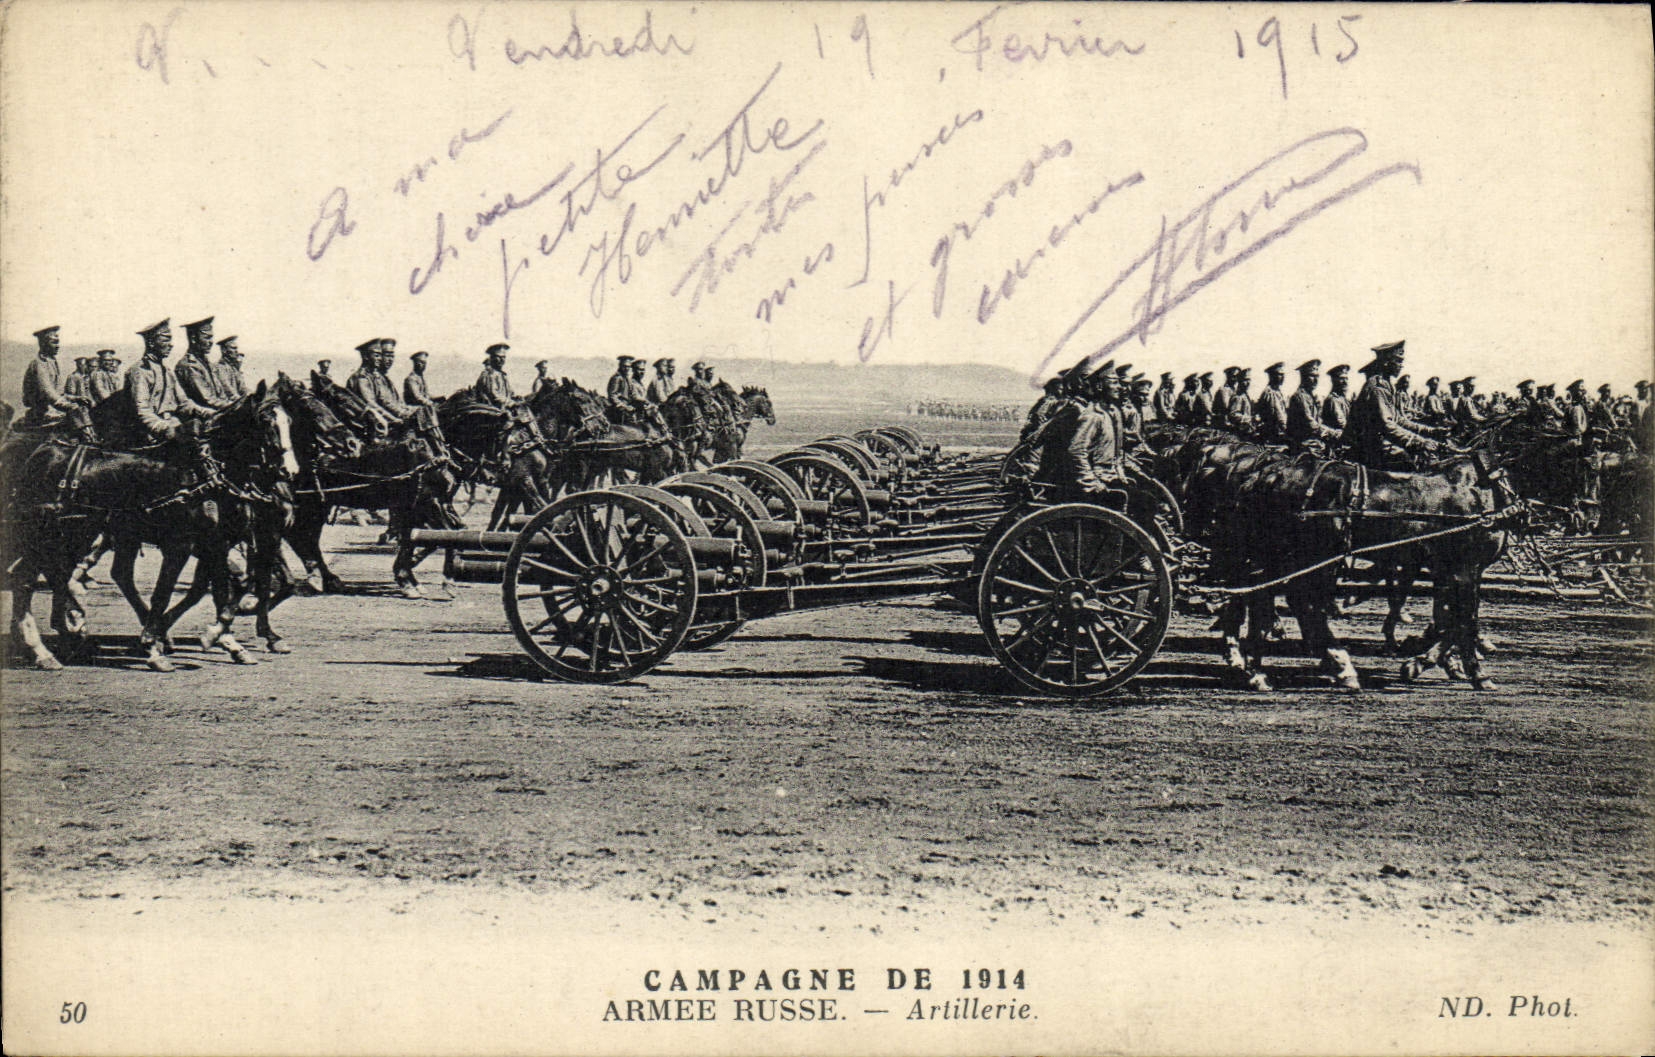 V.... Vendredi 19 Février 1915
A ma
chère
petite
Henriette
Toutes
mes pensées
et grosses
caresses
CAMPAGNE DE 1914
50 ARMEE RUSSE. — Artillerie. ND. Phot.